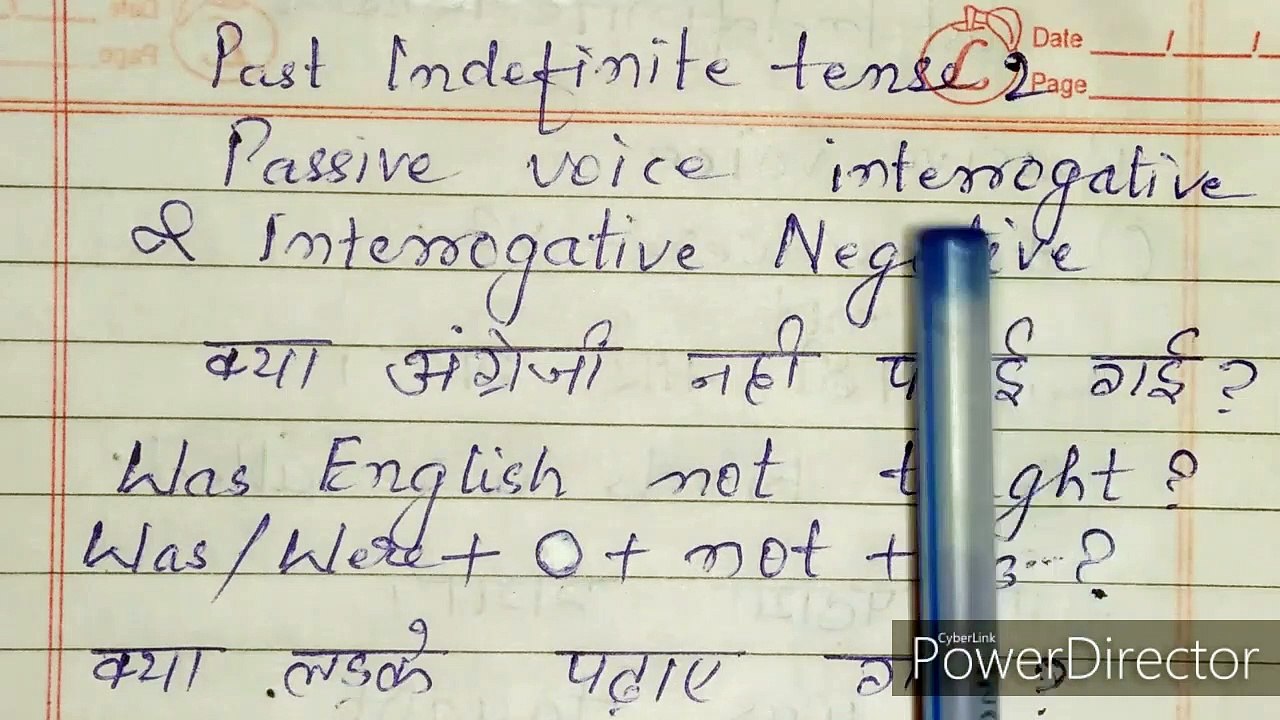 Past Indefinite tense 2
Date
Page
Passive voice interrogative
& Interrogative Negative
क्या अंग्रेजी नही गई?
Was English not ?
Was/Were + O + not + ?
क्या लडके पढ़ाए ?
CyberLink
PowerDirector